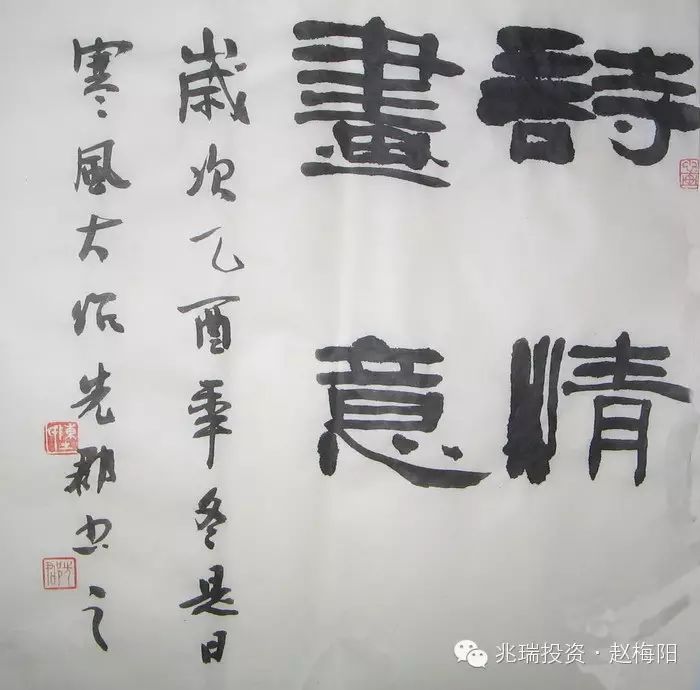 詩情
畫意
歲次乙酉年冬是日
寒風大作先郡书之
兆瑞投资·赵梅阳